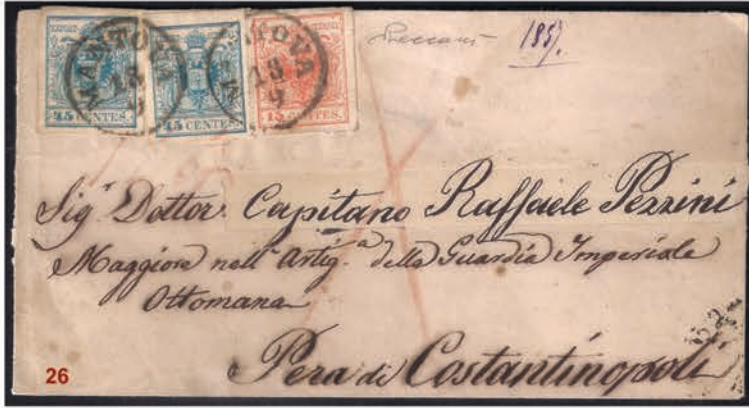 MANTOVA
13
9
MANTOVA
13
9
45 CENTES.
45 CENTES.
15 CENTES.
1857.
Sig.r Dottor. Capitano Raffaele Pezzini
Maggiore nell' Artig.a della Guardia Imperiale
Ottomana
Pera di Costantinopoli
26